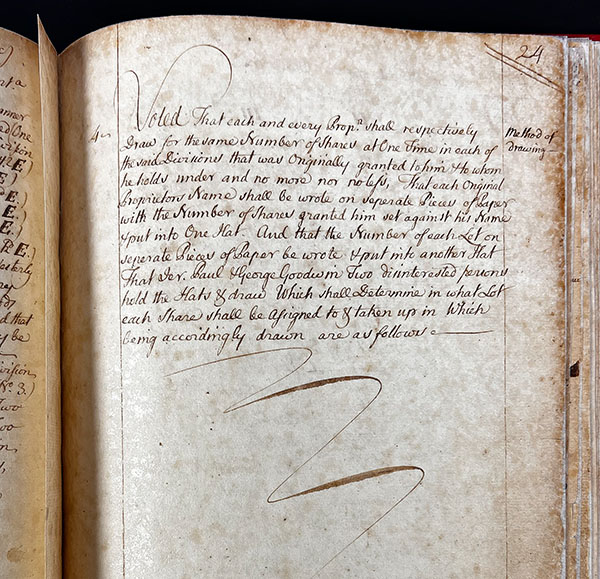 24
4
Voted That each and every Propr. shall respectively
Draw for the same Number of Shares at One Time in each of
the said Divisions that was Originally granted to him & to whom
he holds under and no more nor no less, That each Original
Proprietors Name shall be wrote on seperate Pieces of Paper
with the Number of Shares granted him set against his Name
& put into One Hat. And that the Number of each Lot on
seperate Pieces of Paper be wrote & put into another Hat
That Jer. Paul & George Goodwin Two disinterested persons
hold the Hats & draw Which shall Determine in what Lot
each Share shall be assigned to & taken up in Which
being accordingly drawn are as follows
Method of
Drawing
nner
One
E)
E.
E.
E.
P.E.
that
be
Division
No. 3.)
Two